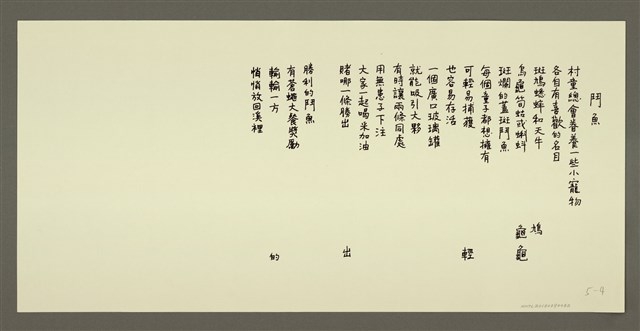 鬥魚
村童總會眷養一些小寵物
各自有喜歡的名目
斑鳩蟋蟀和天牛
烏龜筍蛄或蝌蚪
斑斕的蓋斑鬥魚
每個童子都想擁有
可輕易捕獲
也容易存活
一個廣口玻璃罐
就能吸引大夥
有時讓兩條同處
用無患子下注
大家一起喝釆加油
賭哪一條勝出
勝利的鬥魚
有蒼蠅大餐獎勵
輸輸一方
悄悄放回溪裡
鳩
龜龜
輕
出
的
5-9